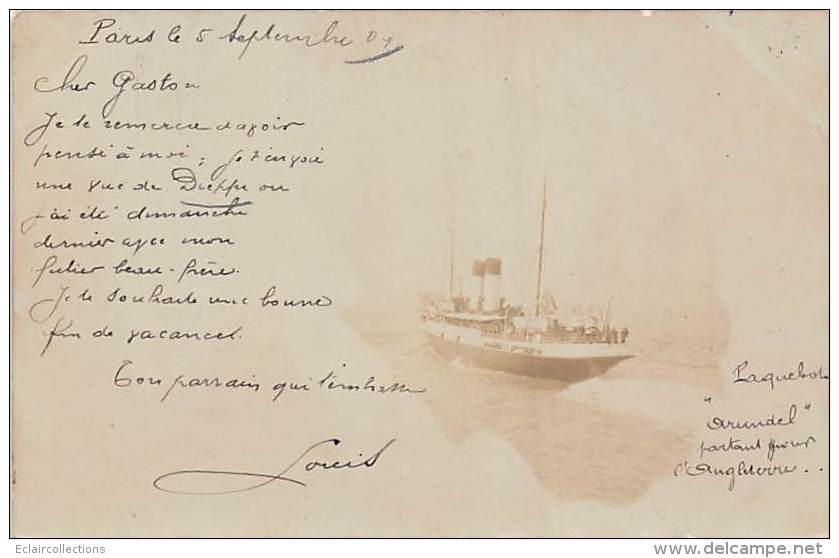 Paris le 5 Septembre 09
Cher Gaston
Je te remercie d'avoir
pensé à moi ; je t'envoie
une vue de Dieppe ou
j'ai été dimanche
dernier avec mon
futur beau-frère.
Je te souhaite une bonne
fin de vacances.
Ton parrain qui t'embrasse
Louis
Paquebot
"Arundel"
partant pour
l'Angleterre..
Eclaircollections
www.delcampe.net